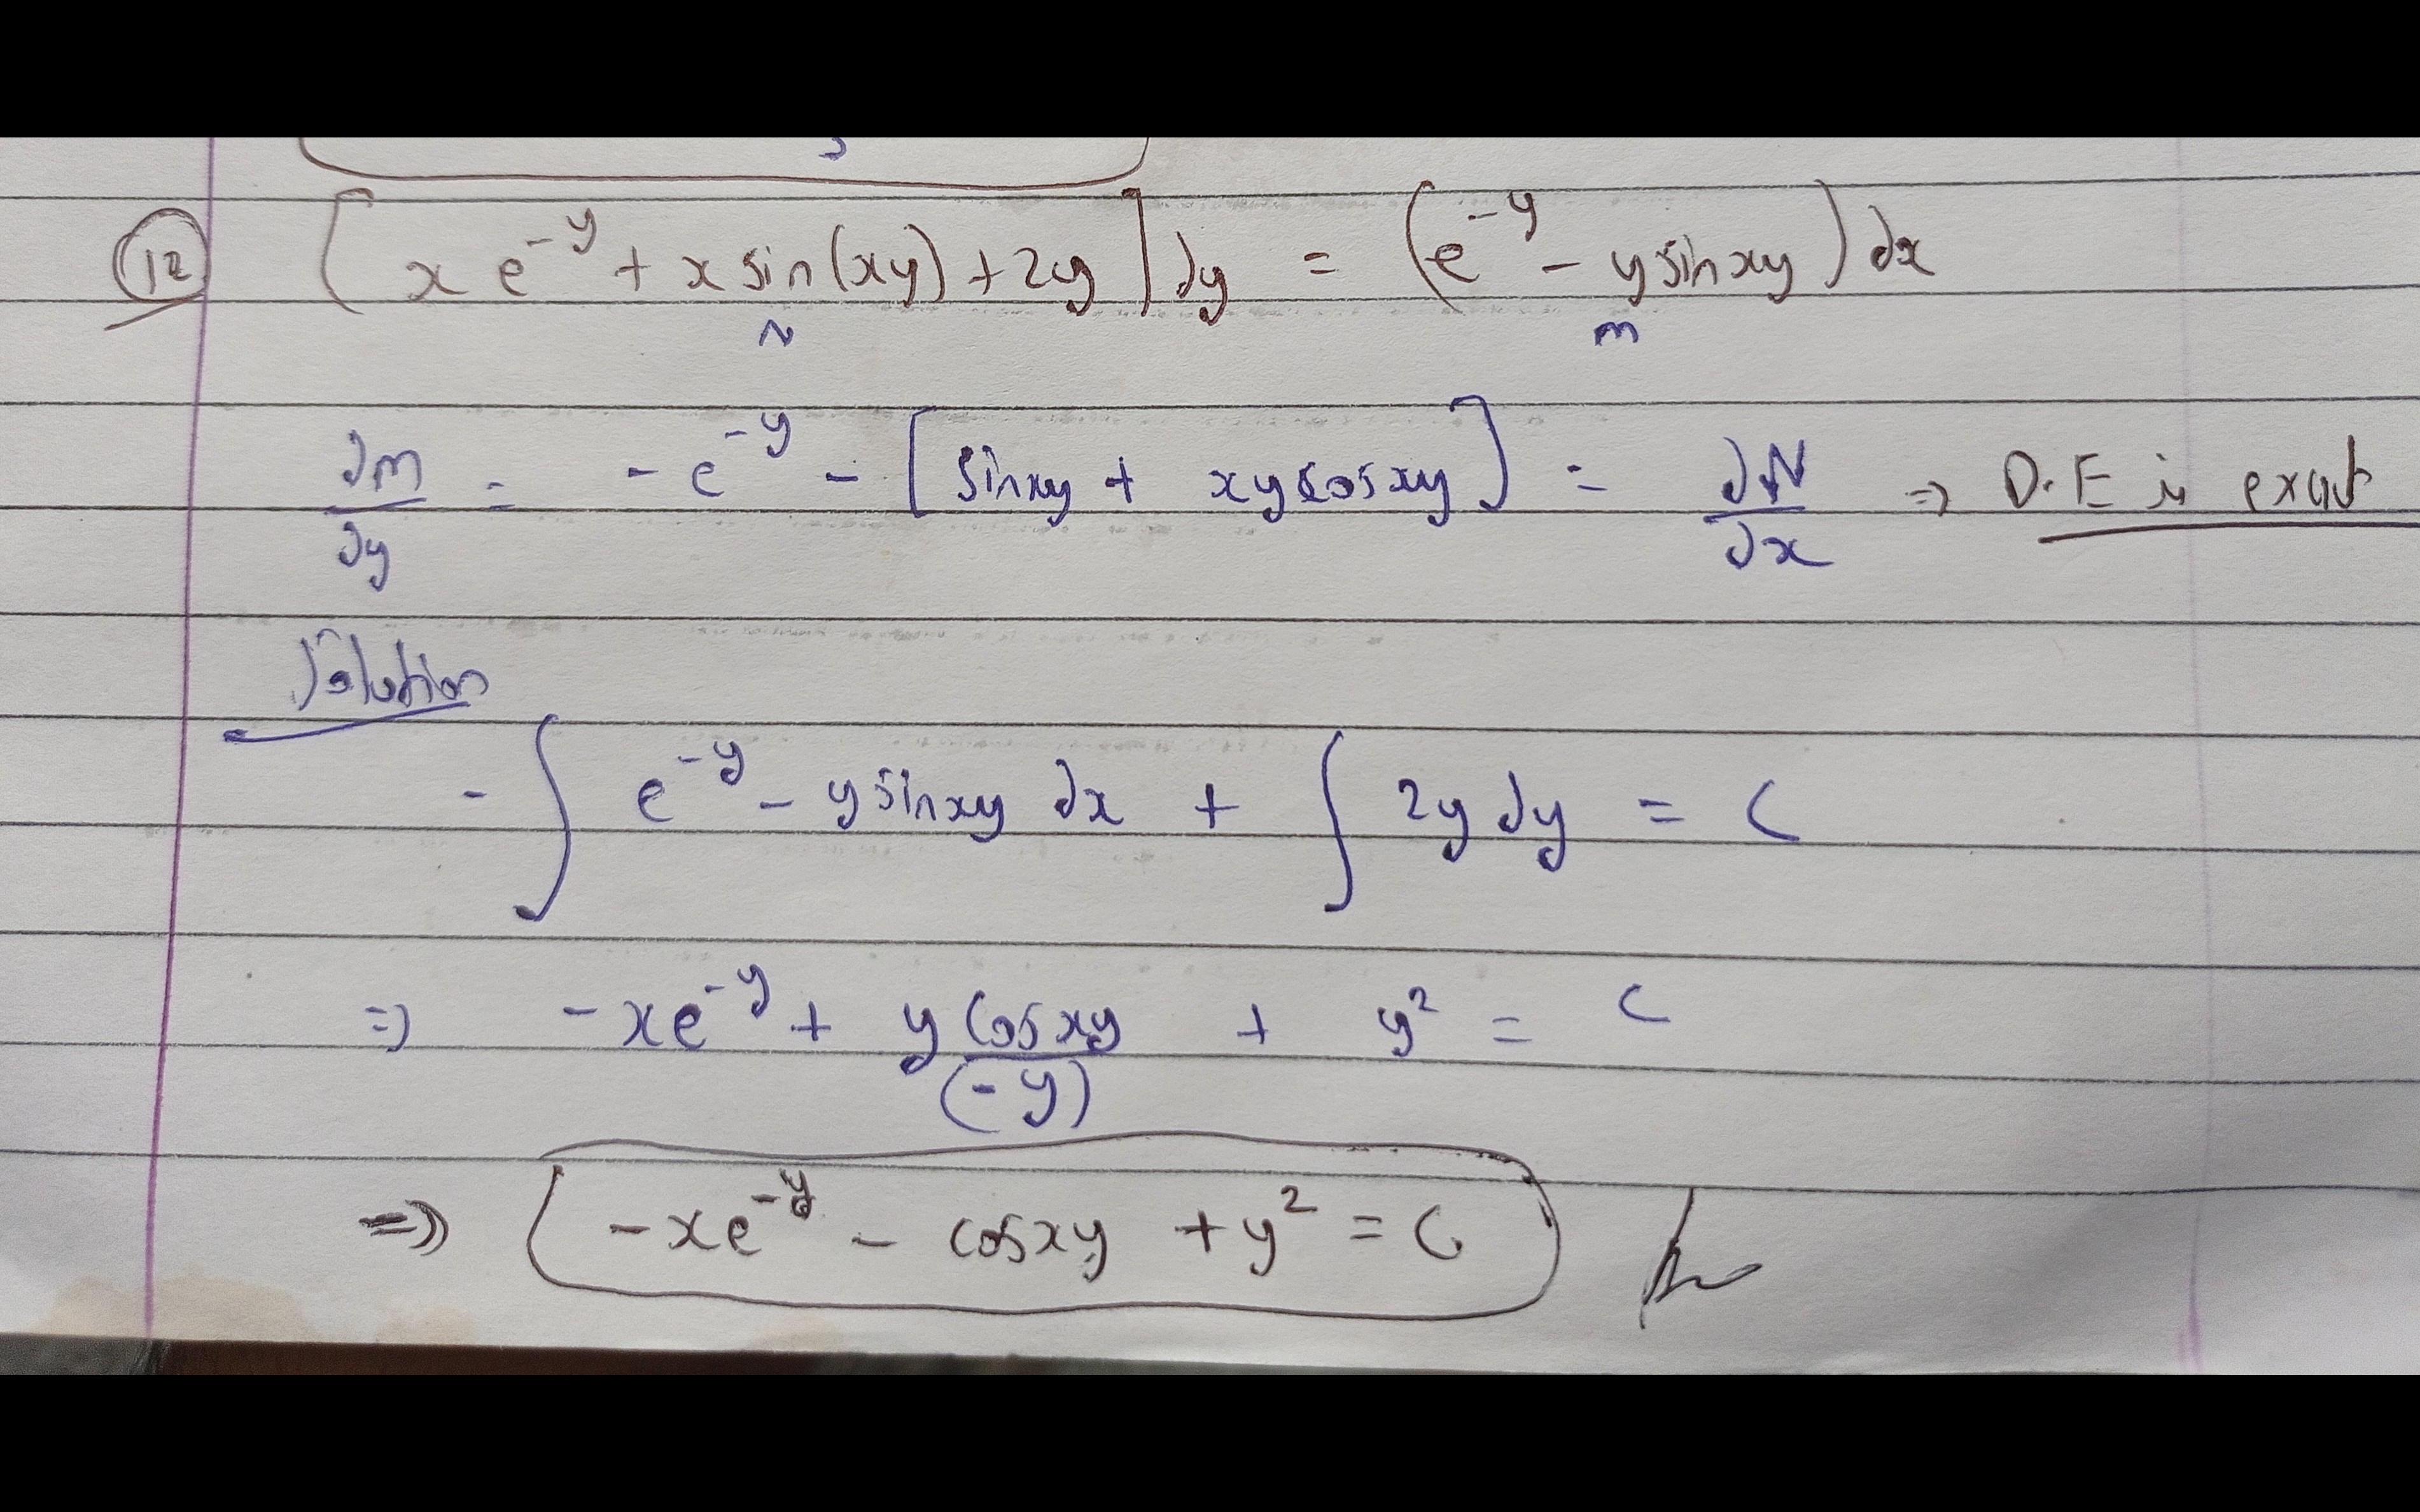 (12) [x e^{-y} + x sin(xy) + 2y] dy = (e^{-y} - y sinxy) dx
N M
∂M/∂y = -e^{-y} - [sinxy + xy cosxy] = ∂N/∂x ⇒ D.E is exact
Solution
-∫ e^{-y} - y sinxy dx + ∫ 2y dy = C
⇒ -xe^{-y} + y cosxy/(-y) + y² = C
⇒ -xe^{-y} - cosxy + y² = C